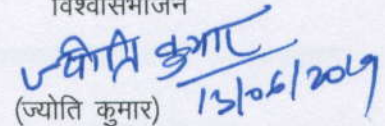 विश्वासभाजन
ज्योति कुमार
13/06/2019
(ज्योति कुमार)